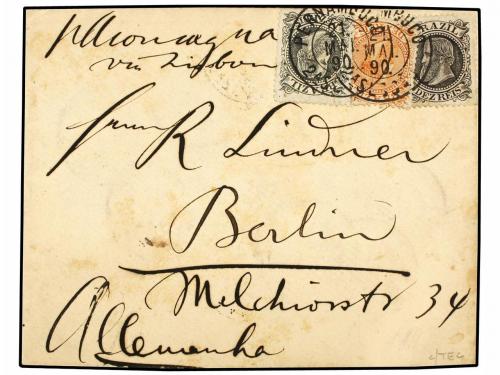 via Lisbon
PERNAMBUCO
MAI
90
BRAZIL
DEZ REIS
Herrn R Lindner
Berlin
Melchiorstr 34
Allemanha
c/TEG